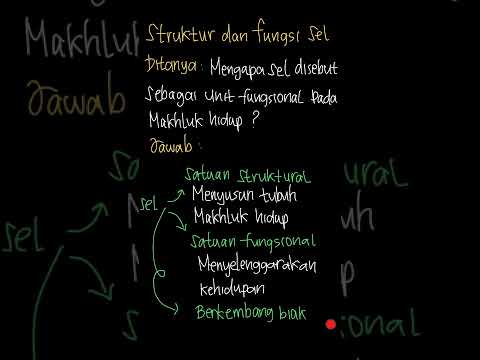 Struktur dan fungsi sel
Ditanya: Mengapa sel disebut
sebagai unit fungsional pada
Makhluk hidup ?
Jawab :
Satuan struktural
sel
Menyusun tubuh
Makhluk hidup
Satuan fungsional
Menyelenggarakan
kehidupan
Berkembang biak